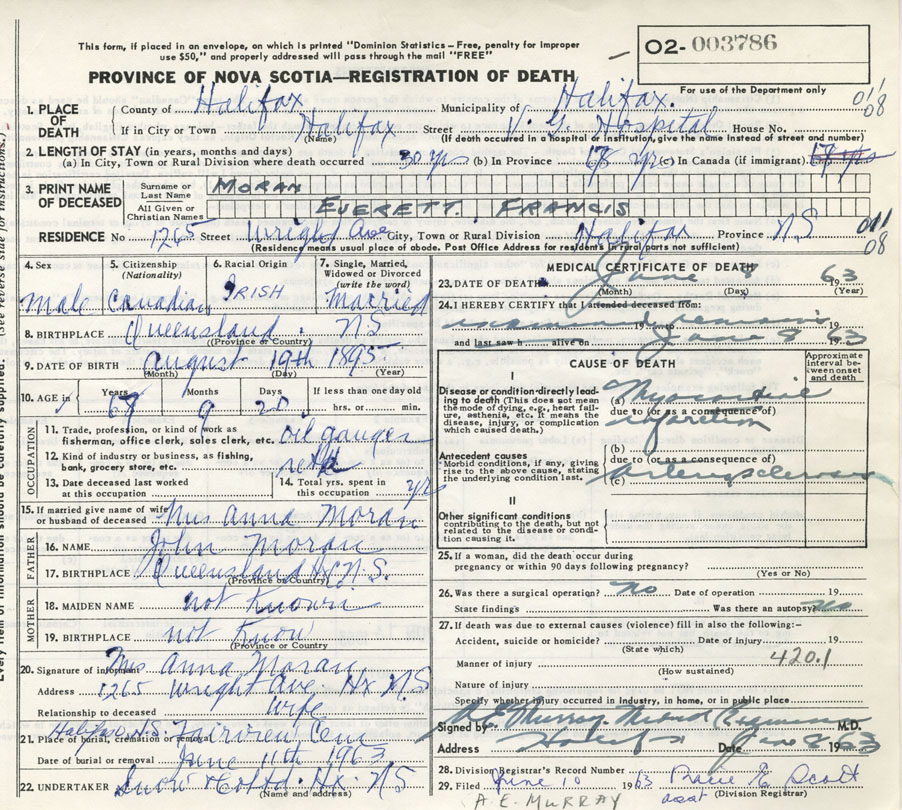 This form, if placed in an envelope, on which is printed "Dominion Statistics - Free, penalty for improper
use $50," and properly addressed will pass through the mail "FREE"
02-003786
PROVINCE OF NOVA SCOTIA—REGISTRATION OF DEATH
For use of the Department only
1. PLACE OF DEATH County of Halifax Municipality of Halifax.
If in City or Town Halifax Street V. G. Hospital House No.
(Name) (If death occurred in a hospital or institution, give the name instead of street and number)
08
2. LENGTH OF STAY (in years, months and days)
(a) In City, Town or Rural Division where death occurred 30 yrs (b) In Province yrs (c) In Canada (if immigrant)
3. PRINT NAME OF DECEASED
Surname or Last Name MORAN
All Given or Christian Names EVERETT. FRANCIS
RESIDENCE No 1265 Street Wright Ave City, Town or Rural Division Halifax Province NS
08
(Residence means usual place of abode. Post Office Address for residents in rural parts not sufficient)
4. Sex Male
5. Citizenship (Nationality) Canadian
6. Racial Origin IRISH
7. Single, Married, Widowed or Divorced (write the word) Married
8. BIRTHPLACE Queensland. NS
(Province or Country)
9. DATE OF BIRTH August 19th 1895
(Month) (Day) (Year)
10. AGE in Years 67 Months 9 Days 20 If less than one day old
hrs. or min.
OCCUPATION
11. Trade, profession, or kind of work as fisherman, office clerk, sales clerk, etc. oil gauger
12. Kind of industry or business, as fishing, bank, grocery store, etc. retd
13. Date deceased last worked at this occupation
14. Total yrs. spent in this occupation yrs
15. If married give name of wife or husband of deceased Mrs Anna Moran
FATHER
16. NAME John Moran
17. BIRTHPLACE Queensland Hx N.S.
(Province or Country)
MOTHER
18. MAIDEN NAME not Known
19. BIRTHPLACE not Know
(Province or Country)
20. Signature of informant Mrs Anna Moran
Address 1265 Wright Ave. Hx NS
Relationship to deceased wife
21. Place of burial, cremation or removal Halifax, N.S. Fairview Cem
Date of burial or removal June 11th 1963
22. UNDERTAKER Snow & Co Ltd. Hx. NS
(Name and address)
MEDICAL CERTIFICATE OF DEATH
23. DATE OF DEATH June 8 1963
(Month) (Day) (Year)
24. I HEREBY CERTIFY that I attended deceased from:
examined remains 19 to 19
and last saw h alive on June 8 1963
CAUSE OF DEATH
Approximate interval between onset and death
I
Disease or condition directly leading to death (This does not mean the mode of dying, e.g., heart failure, asthenia, etc. It means the disease, injury, or complication which caused death.)
(a) Myocardial
due to (or as a consequence of)
infarction
Antecedent causes
Morbid conditions, if any, giving rise to the above cause, stating the underlying condition last.
(b)
due to (or as a consequence of)
(c) Arteriosclerosis
II
Other significant conditions
contributing to the death, but not related to the disease or condition causing it.
25. If a woman, did the death occur during pregnancy or within 90 days following pregnancy?
(Yes or No)
26. Was there a surgical operation? No Date of operation 19
State findings Was there an autopsy? No
27. If death was due to external causes (violence) fill in also the following:-
Accident, suicide or homicide? Date of injury 19
(State which)
420.1
Manner of injury
(How sustained)
Nature of injury
Specify whether injury occurred in industry, in home, or in public place
Signed by A E Murray. Medical Examiner M.D.
Address Halifax Date June 8 1963
28. Division Registrar's Record Number
29. Filed June 10 1963 Scott
asst (Division Registrar)
A. E. MURRAY
Every item of information should be carefully supplied. (See reverse side for instructions.)